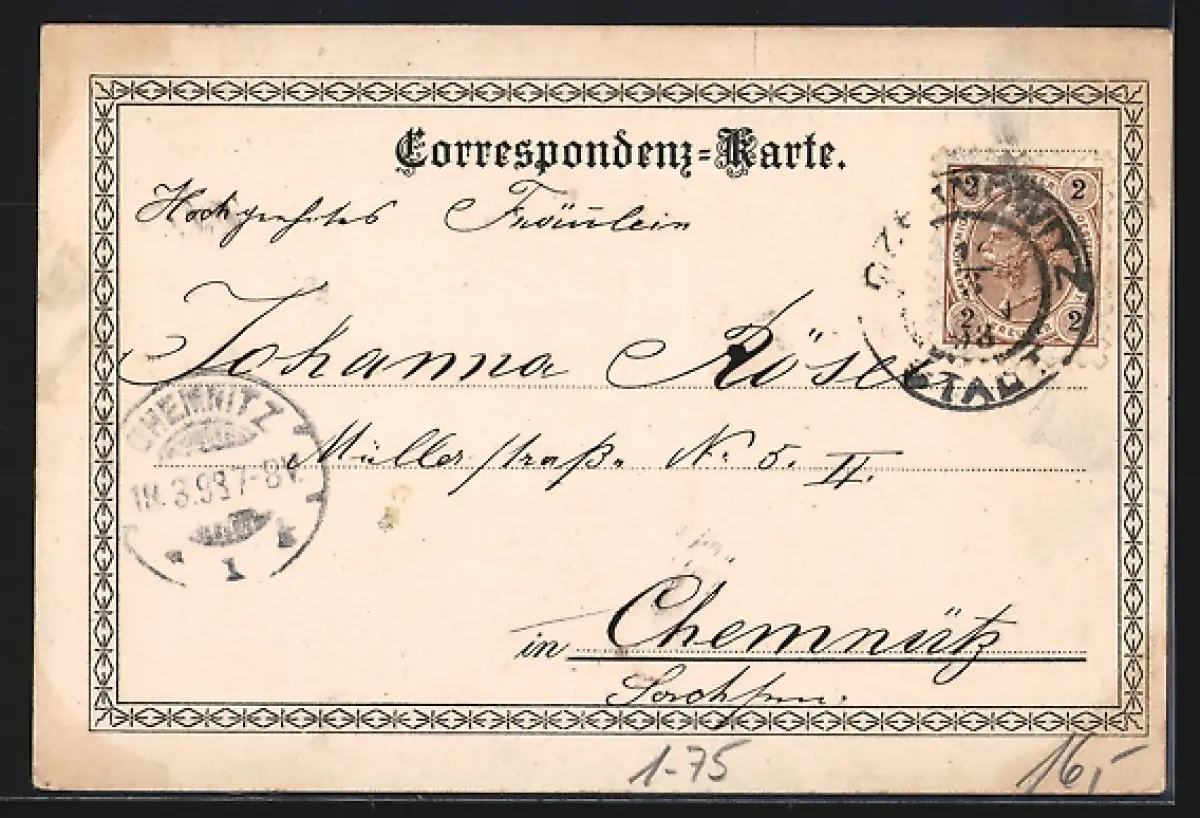 Correspondenz-Karte.
Hochgeehrtes Fräulein
Johanna Röse
Müllerstraße No. 5. II.
in Chemnütz
Sachsen.
CHEMNITZ
3.98 7-8V.
1 k
CZERNOWITZ
STADT
98
2 2
2 2
1-75
16,-